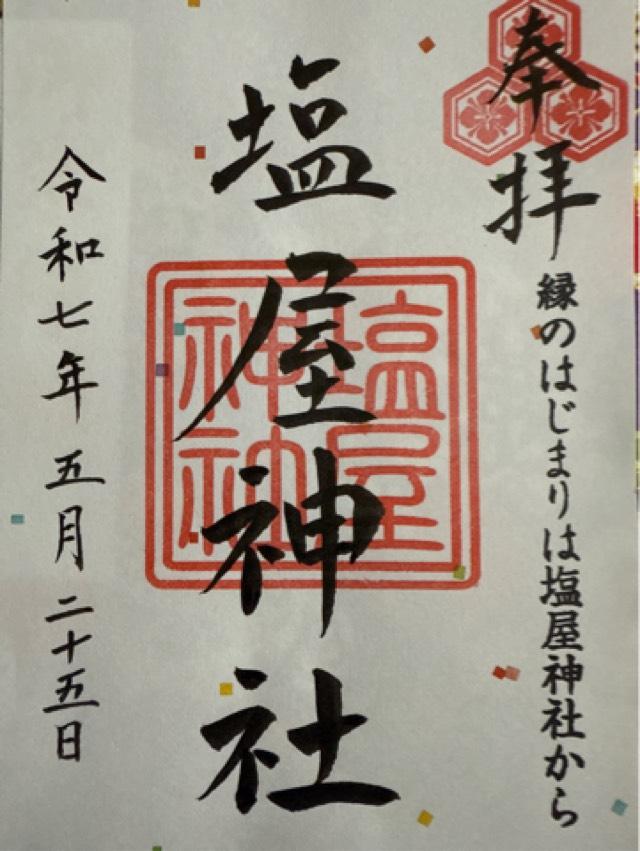 奉拝
縁のはじまりは塩屋神社から
塩屋神社
塩屋神社
令和七年五月二十五日